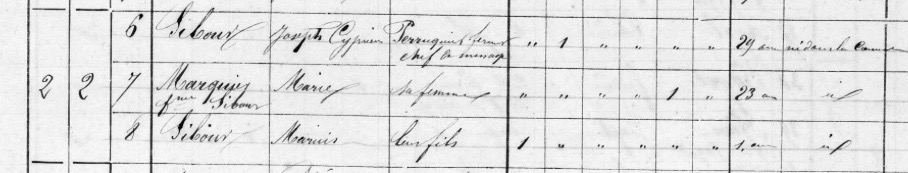 6 Sibour Joseph Cyprien Perruquier fermr " 1 " " " " 29 ans né dans la commune
chef de ménage
2 2 7 Marquier Marie sa femme " " " " 1 " 23 ans id
fme Sibour
8 Sibour Marius leur fils 1 " " " " " 1 an id